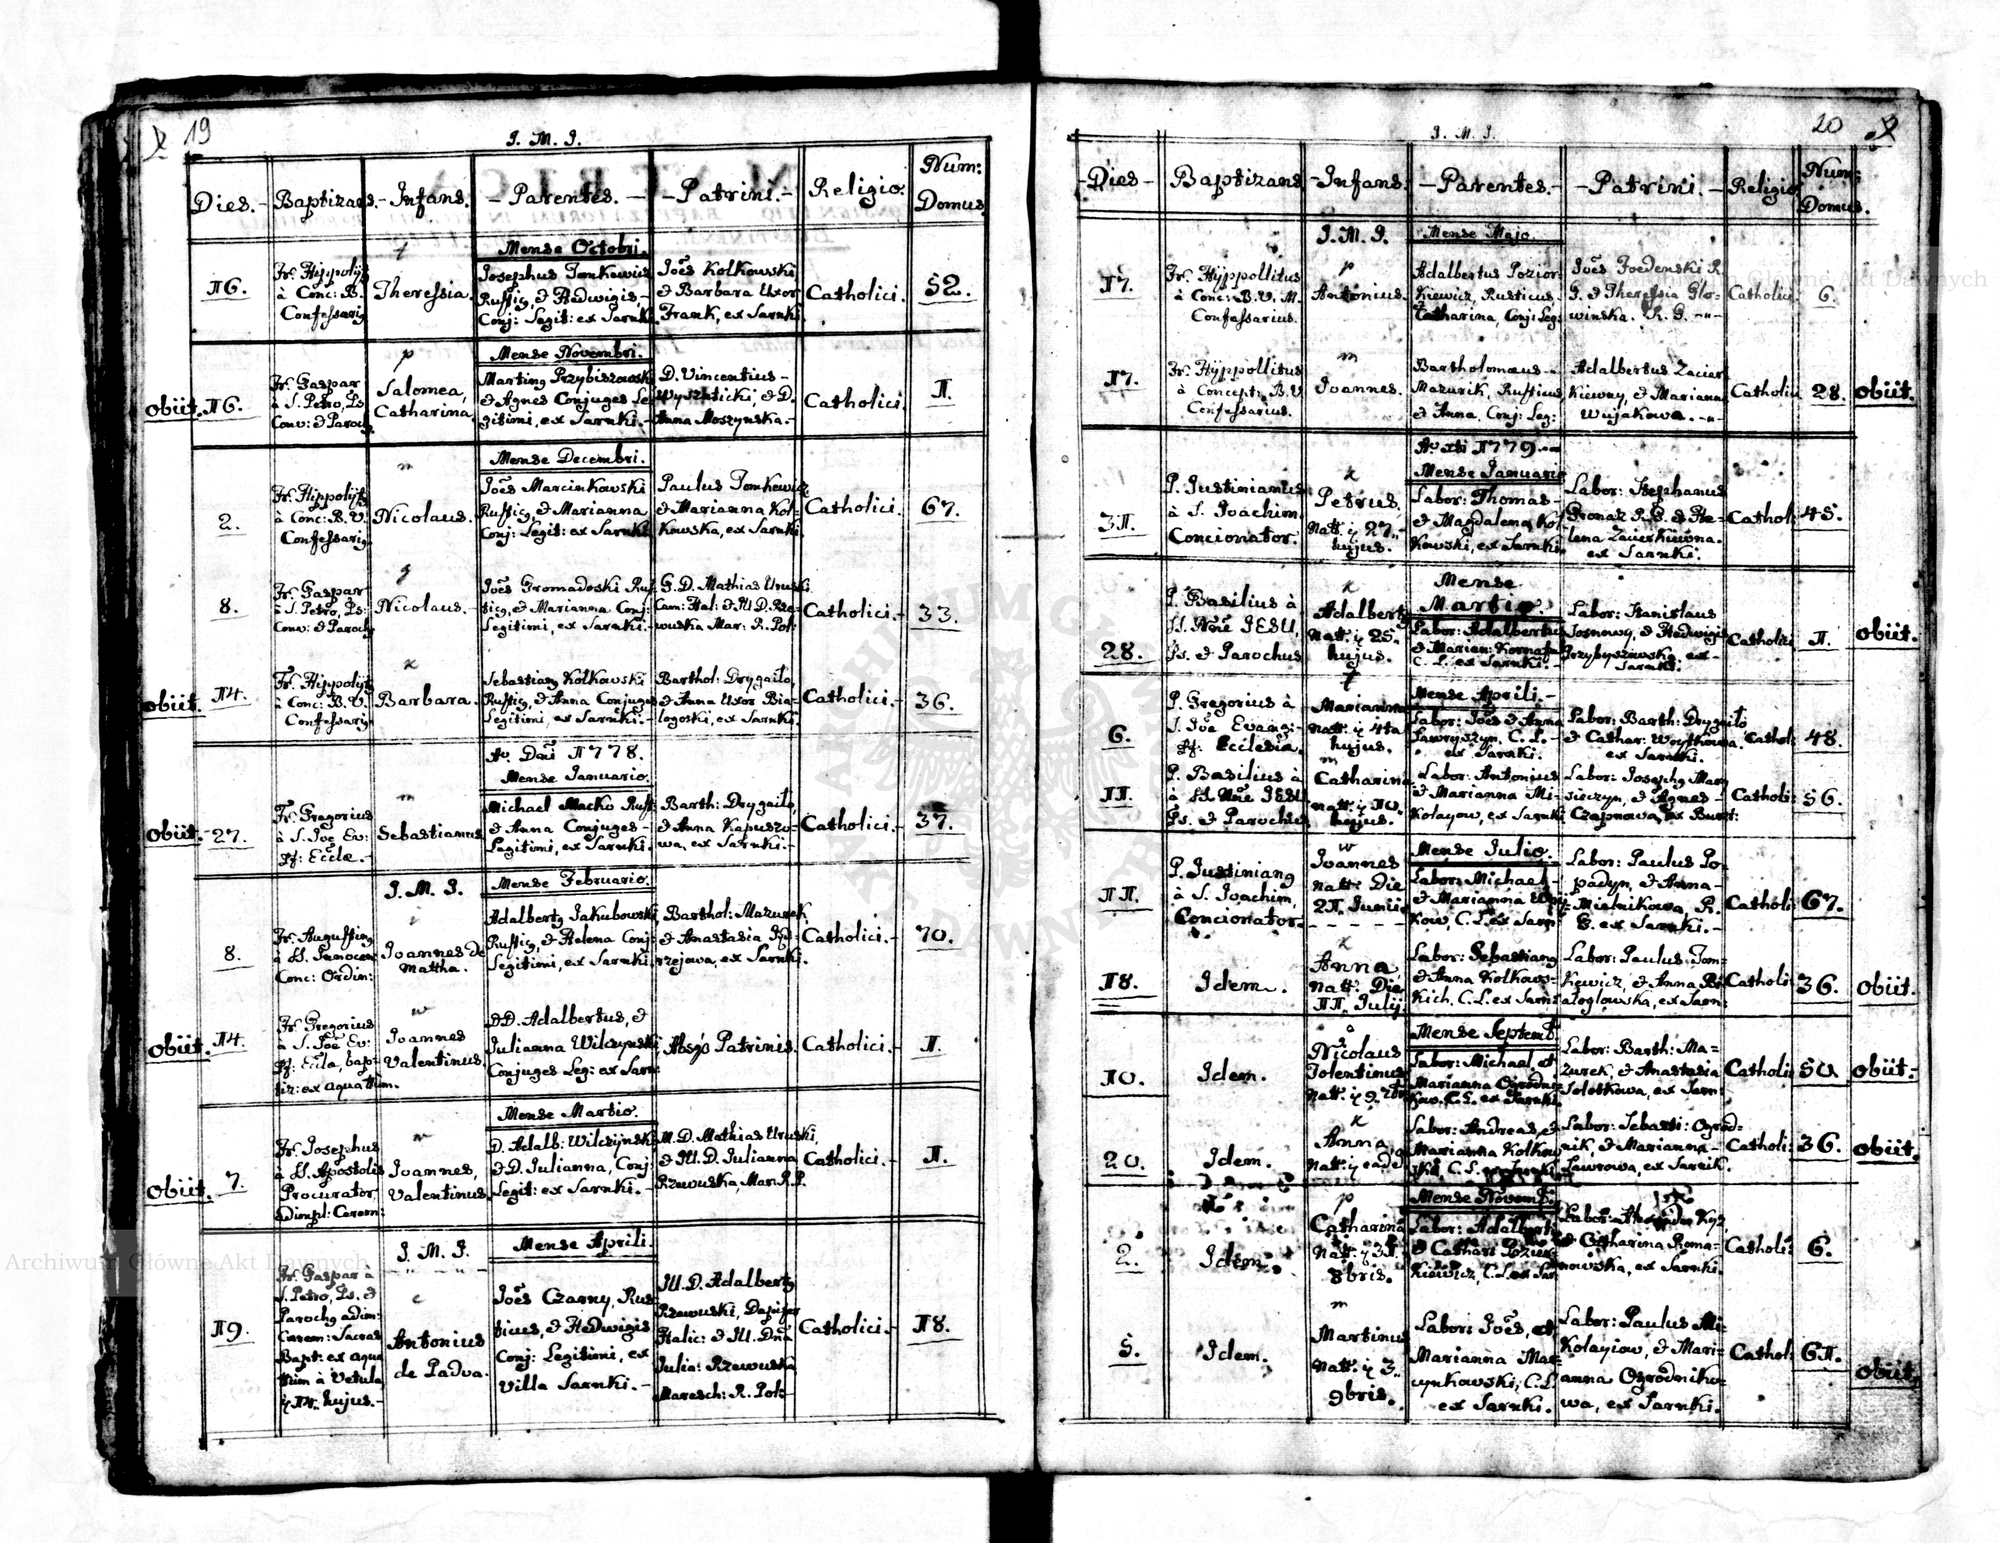 19
J. M. J.
Dies.- Baptizans.- Infans. - Parentes. - - Patrini. - Religio. Num: Domus.
Mense Octobri.
16. Fr. Hyppolit9 à Conc: B. Confessari9
Theressia.
Josephus Tomkewicz
Rustic9, & Hedwigis
Conj: Legit: ex Sarnki.
Joẽs Kolkowski
& Barbara Uxor
Frank, ex Sarnki
Catholici. 52.
Mense Novembri.
Obiit. 16. Fr. Gaspar
à S. Petro, Ps.
Conv: & Paroch9
Salomea,
Catharina
Martin9 Przybiszewski
& Agnes Conjuges Le-
gitimi, ex Sarnki.-
D. Vincentius -
Wyszketicki, & D.
Anna Moszynska.-
Catholici. 1.
Mense Decembri.
2. Fr. Hippolyt9
à Conc: B. V.
Confessari9
Nicolaus.
Joẽs Marcinkowski
Rustic9, & Marianna
Conj: Legit: ex Sarnki
Paulus Tomkewicz
& Marianna Kol-
kowska, ex Sarnki
Catholici. 67.
8. Fr. Gaspar
à S. Petro, Ps:
Conv: & Paroch9
Nicolaus.-
Joẽs Gromadoski Rus-
tic9, & Marianna Conj:
Legitimi, ex Sarnki.-
G. D. Mathias Uruski
Cam: Hal: & Ill. D. Rze-
wuska Mar: R. Pol:
Catholici.- 33.
Obiit. 14. Fr. Hippolyt9
à Conc: B. V.
Confessari9
Barbara.
Sebastian9 Kolkowski
Rustic9, & Anna Conjuges
Legitimi, ex Sarnki.-
Barthol: Drygailo,
& Anna Uxor Bia-
logoski, ex Sarnki.
Catholici.- 36.
Aõ. Dñi 1778.
Mense Januario.
Obiit.- 27. Fr. Gregorius
à S. Joẽ Ev:
Pf: Eccłæ.-
Sebastianus
Michael Macko Rust:
& Anna Conjuges-
Legitimi, ex Sarnki.
Barth: Drygailo,
& Anna Kapuszo-
wa, ex Sarnki.-
Catholici.- 37.
J. M. J.
Mense Februario.
8. Fr. Augustin9
à SS. Innocen
Conc: Ordin:
Joannes de
Mattha.
Adalbert9 Jakubowski
Rustic9, & Helena Conj:
Legitimi, ex Sarnki.
Barthol: Mazurek
& Anastasia
rzejowa, ex Sarnki.
Catholici.- 70.
Obiit. 14. Fr. Gregorius
à S. Joẽ Ev:
Pf: Eccla, bap-
tiz: ex aqua tum.
Joannes
Valentinus.
DD. Adalbertus, &
Julianna Wilczynski
Conjuges Leg: ex Sarn:
Absq3 Patrinis.
Catholici.- 1.
Mense Martio.
Obiit. 7. Fr. Josephus
à SS. Apostolis
Procurator,
Adimpl: Cerem:
Joannes,
Valentinus.
D. Adalb: Wilczynski
& D. Julianna, Conj:
Legit: ex Sarnki.-
M. D. Mathias Uruski,
& Ill. D. Julianna
Rzewuska, Mar. R. P.
Catholici.- 1.
J. M. J.
Mense Aprili.
19. Fr. Gaspar à
S. Petro, Ps. &
Paroch9 adim:
Cerem: Sacras
Bapt: ex aqua
tum à Vetula
hujus.-
Antonius
de Padva.
Joẽs Czarny, Rus-
ticus, & Hedwigis
Conj: Legitimi, ex
Villa Sarnki.-
Ill. D. Adalbert9
Rzewuski, Dapifer
Halic: & Ill. Dña
Julia: Rzewuska
Maresch: R. Pol:-
Catholici.- 18.
20
J. M. J.
Dies - Baptizans - Infans. - Parentes. - - Patrini. - Religio. Num: Domus.
J. M. J. Mense Majo.
17. Fr. Hyppollitus
à Conc: B. V. M.
Confessarius.
Antonius.
Adalbertus Pozior-
kiewicz, Rusticus.
Catharina, Conj: Leg:
Joẽs Joedenski R.
G. & Theressia Glo-
winska. R. G. -"-
Catholici. 6.
17. Fr. Hyppollitus
à Concept: B. V.
Confessarius.
Joannes.
Bartholomæus -
Mazurik, Rusticus
& Anna, Conj: Leg:
Adalbertus Zacier
Kiewny, & Marianna
Wujakowa. -"-
Catholici. 28. Obiit.
1779
Mense Januario
31. P. Justinianus
à S. Joachim.
Concionator.
Petrus,
Natt: 27.
hujus.
Labor: Thomas -
& Magdalena Kol-
kowski, ex Sarnki.
Labor: Stephanus
Pronaz R. G. & He-
lena Zacierkiewna.
ex Sarnki.
Cathol: 45.
Mense
Martio.
28. P. Basilius à
SS. Nõe JESU,
Ps. & Parochus
Adalbert9
Natt: 25.
hujus.
Labor: Adalbertus
& Marian:
C. L. ex Sarnki.
Labor: Stanislaus
Josnowy, & Hedwigis
Przybyszewska, ex
Sarnki.
Catholici 1. Obiit.
Mense Aprili.-
6. P. Gregorius à
S. Joẽ Evang:-
Pf: Ecclesia.
Marianna
Natt: 4ta
hujus.
Labor: Joẽs & Anna
Lawryszyn, C. L. -
ex Sarnki.
Labor: Barth: Drygailo
& Cathar: Woytkowa.
ex Sarnki.
Cathol: 48.
11. P. Basilius à
à SS. Nõe JESU
Ps. & Parochus
Catharina
Natt: 10.
hujus.
Labor: Antonius
& Marianna Mi-
kolayow, ex Sarnki
Labor: Joseph9 Mary
sieczyn, & Agnes -
Czapnowa, ex Burst:
Catholi: 56.
Mense Julio.
11. P. Justinian9
à S. Joachim,
Concionator.
Joannes
Natt: Die
21. Junii
Labor: Michael -
& Marianna
kow, C. L. ex Sarn
Labor: Paulus Po-
padyn, & Anna -
Mialnikowa, R.
G. ex Sarnki.-
Catholi: 67.
18. Idem.
Anna,
Natt: Die
11. Julij.
Labor: Sebastian9
& Anna Kolkows-
kich. C. L. ex Sarn
Labor: Paulus Tom-
kewicz, & Anna Bi-
aloglowska, ex Sarn:
Catholi: 36. Obiit.
Mense Septemb.
10. Idem.
Nicolaus
Tolentinus
Natt: 9. 7br
Labor: Michael, et
Marianna Ogrodni-
kow. C. L. ex Sarnki.
Labor: Barth: Ma-
zurek, & Anastasia
Solotkowa, ex Sarn:
Catholi: 50. Obiit.-
20. Idem.
Anna
Natt: ead
Labor: Andreas, &
Marianna Kolkow-
ski, C. L. ex Sarnki.
Labor: Sebasti: Ogrod-
nik, & Marianna -
Lawrowa, ex Sarnik.
Catholi: 36. Obiit.
Mense Novemb.
2. Idem.
Catharina
Natt: 31.
8bris.
Labor: Adalbert9
& Cathari Pozier-
kiewicz, C. L. ex Sar.
& Catharina Roma-
nowska, ex Sarnki.
Catholi: 6.
5. Idem.
Martinus
Natt: 3.
9bris.
Labor: Joẽs, et
Marianna Mar-
cynkowski, C. L.
ex Sarnki.
Labor: Paulus Mi-
kolayiow, & Mari-
anna Ogrodniko-
wa, ex Sarnki.
Cathol: 61. Obiit.
Archiwum Główne Akt Dawnych
Archiwum Główne Akt Dawnych
ARCHIWUM GŁÓWNE AKT DAWNYCH